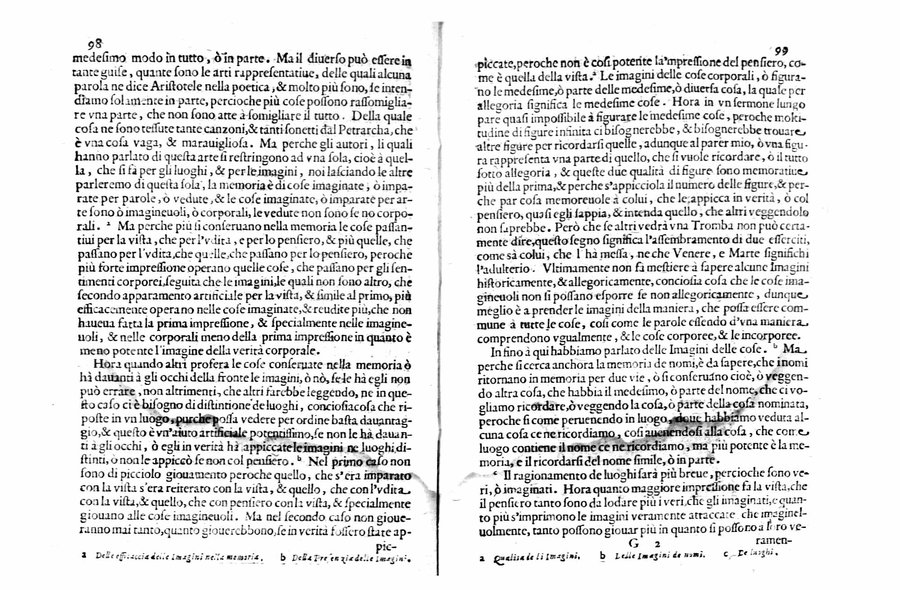 98
medesimo modo in tutto, ò in parte. Ma il diuerso può essere in
tante guise, quante sono le arti rappresentatiue, delle quali alcuna
parola ne dice Aristotele nella poetica, & molto più sono, se inten-
diamo solamente in parte, percioche più cose possono rassomiglia-
re vna parte, che non sono atte à somigliare il tutto. Della quale
cosa ne sono tessute tante canzoni, & tanti sonetti dal Petrarcha, che
è vna cosa vaga, & marauigliosa. Ma perche gli autori, li quali
hanno parlato di questa arte si restringono ad vna sola, cioè à quel-
la, che si fà per gli luoghi, & per le imagini, noi lasciando le altre
parleremo di questa sola, la memoria è di cose imaginate, ò impa-
rate per parole, ò vedute, & le cose imaginate, ò imparate per ar-
te sono ò imagineuoli, ò corporali, le vedute non sono se no corpo-
rali. a Ma perche più si conseruano nella memoria le cose passan-
tiui per la vista, che per l'vdita, e per lo pensiero, & più quelle, che
passano per l'vdita, che quelle, che passano per lo pensiero, peroche
più forte impressione operano quelle cose, che passano per gli sen-
timenti corporei, seguita che le imagini, le quali non sono altro, che
secondo apparamento artificiale per la vista, & simile al primo, più
efficacemente operano nelle cose imaginate, & reudite più, che non
haueua fatta la prima impressione, & spetialmente nelle imagine-
uoli, & nelle corporali meno della prima impressione in quanto è
meno potente l'imagine della verità corporale.
Hora quando altri profera le cose conseruate nella memoria ò
hà dauanti à gli occhi della fronte le imagini, ò nò, se le hà egli non
può errare, non altrimenti, che altri farebbe leggendo, ne in que-
sto caso ci è bisogno di distintione de luoghi, conciosiacosa che ri-
poste in vn luogo, purche possa vedere per ordine basta dauantag-
gio, & questo è vn'aiuto artificiale potentissimo, se non le hà dauan-
ti à gli occhi, ò egli in verità hà appiccate le imagini ne luoghi di-
stinti, ò non le appiccò se non col pensiero. b Nel primo caso non
sono di picciolo giouamento peroche quello, che s'era imparato
con la vista s'era reiterato con la vista, & quello, che con l'vdita
con la vista, & quello, che con pensiero con la vista, & spetialmente
giouano alle cose imagineuoli. Ma nel secondo caso non gioue-
ranno mai tanto, quanto giouerebbono, se in verità fossero state ap-
pic-
a Delle efficacia delle Imagini nella memoria. b Della delle Imagini.
99
piccate, peroche non è così potente la'mpressione del pensiero, co-
me è quella della vista. a Le imagini delle cose corporali, ò figura-
no le medesime, ò parte delle medesime, ò diuersa cosa, la quale per
allegoria significa le medesime cose. Hora in vn sermone lungo
pare quasi impossibile à figurare le medesime cose, peroche molti-
tudine di figure infinita ci bisognerebbe, & bisognerebbe trouare
altre figure per ricordarsi quelle, adunque al parer mio, ò vna figu-
ra rappresenta vna parte di quello, che si vuole ricordare, ò il tutto
sotto allegoria, & queste due qualità di figure sono memoratiue
più della prima, & perche s'appicciola il numero delle figure, & per-
che par cosa memoreuole à colui, che le appicca in verità, ò col
pensiero, quasi egli sappia, & intenda quello, che altri veggendolo
non saprebbe. Però che se altri vedrà vna Tromba non può certa-
mente dire, questo segno significa l'assembramento di due esserciti,
come sà colui, che l'hà messa, ne che Venere, e Marte significhi
l'adulterio. Vltimamente non fa mestiere à sapere alcune Imagini
historicamente, & allegoricamente, conciosia cosa che le cose ima-
gineuoli non si possano esporre se non allegoricamente, dunque
meglio è à prender le imagini della maniera, che possa essere com-
mune à tutte le cose, così come le parole essendo d'vna maniera
comprendono vgualmente, & le cose corporee, & le incorporee.
In fino à qui habbiamo parlato delle Imagini delle cose. b Ma
perche si cerca anchora la memoria de nomi, è da sapere, che i nomi
ritornano in memoria per due vie, ò si conseruano cioè, ò veggen-
do altra cosa, che habbia il medesimo, ò parte del nome, che ci vo-
gliamo ricordare, ò veggendo la cosa, ò parte della cosa nominata,
peroche si come peruenendo in luogo, doue habbiamo veduta al-
cuna cosa ce ne ricordiamo, così auenendosi alla cosa, che come
luogo contiene il nome ce ne ricordiamo, ma più potente è la me-
moria, e il ricordarsi del nome simile, ò in parte.
c Il ragionamento de luoghi sarà più breue, percioche sono ve-
ri, ò imaginati. Hora quanto maggiore impressione fa la vista, che
il pensiero tanto sono da lodare più i veri, che gli imaginati, e quan-
to più s'imprimono le imagini veramente attraccate che imaginel-
uolmente, tanto possono giouar più in quanto si possono à loro ve-
G 2 ramen-
a Qualità de li Imagini. b Delle Imagini de nomi. c De luoghi.